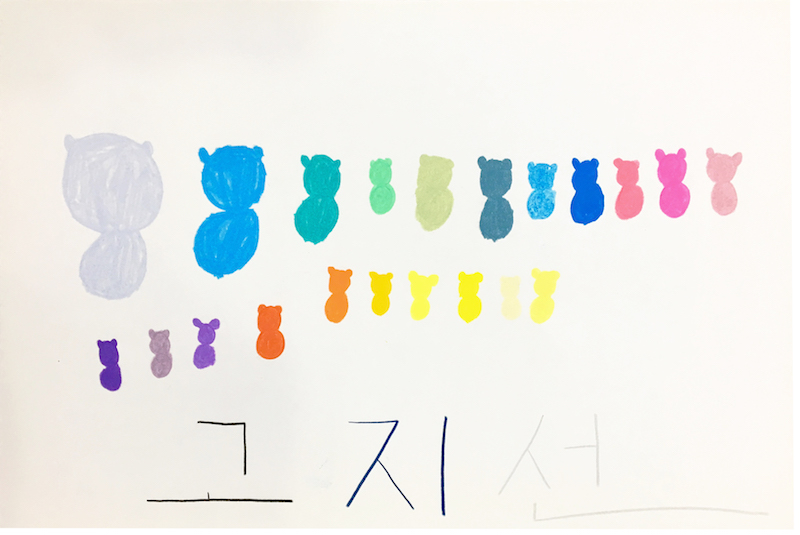 고지선